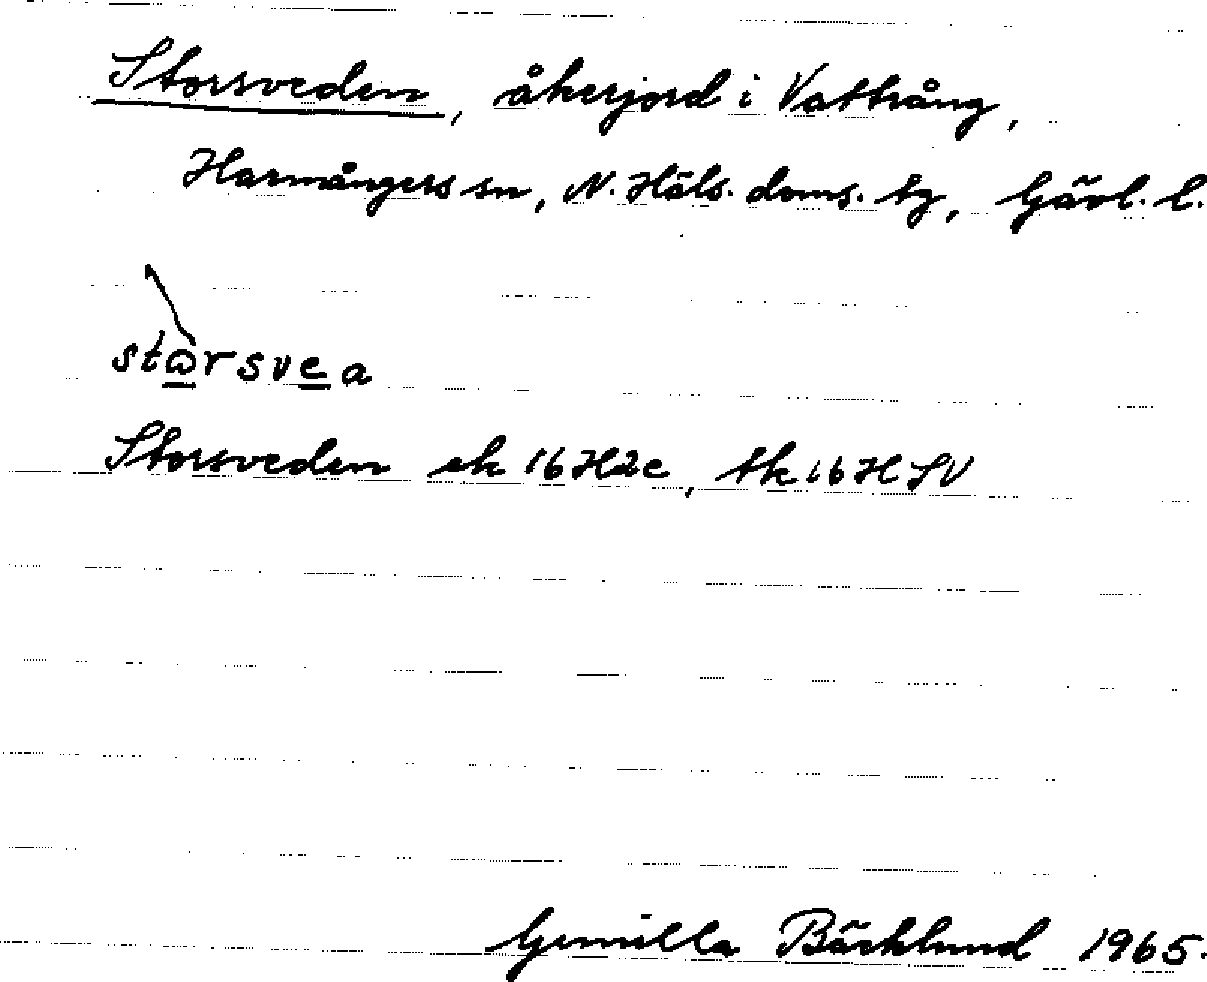 Storsveden, åkerjord i Vattrång,
Harmångers sn, N. Häls. doms. tg, Gävl. l.
stɷrsvea
Storsveden ek 16H2e, tk 16H SV
Gunilla Bäcklund 1965.